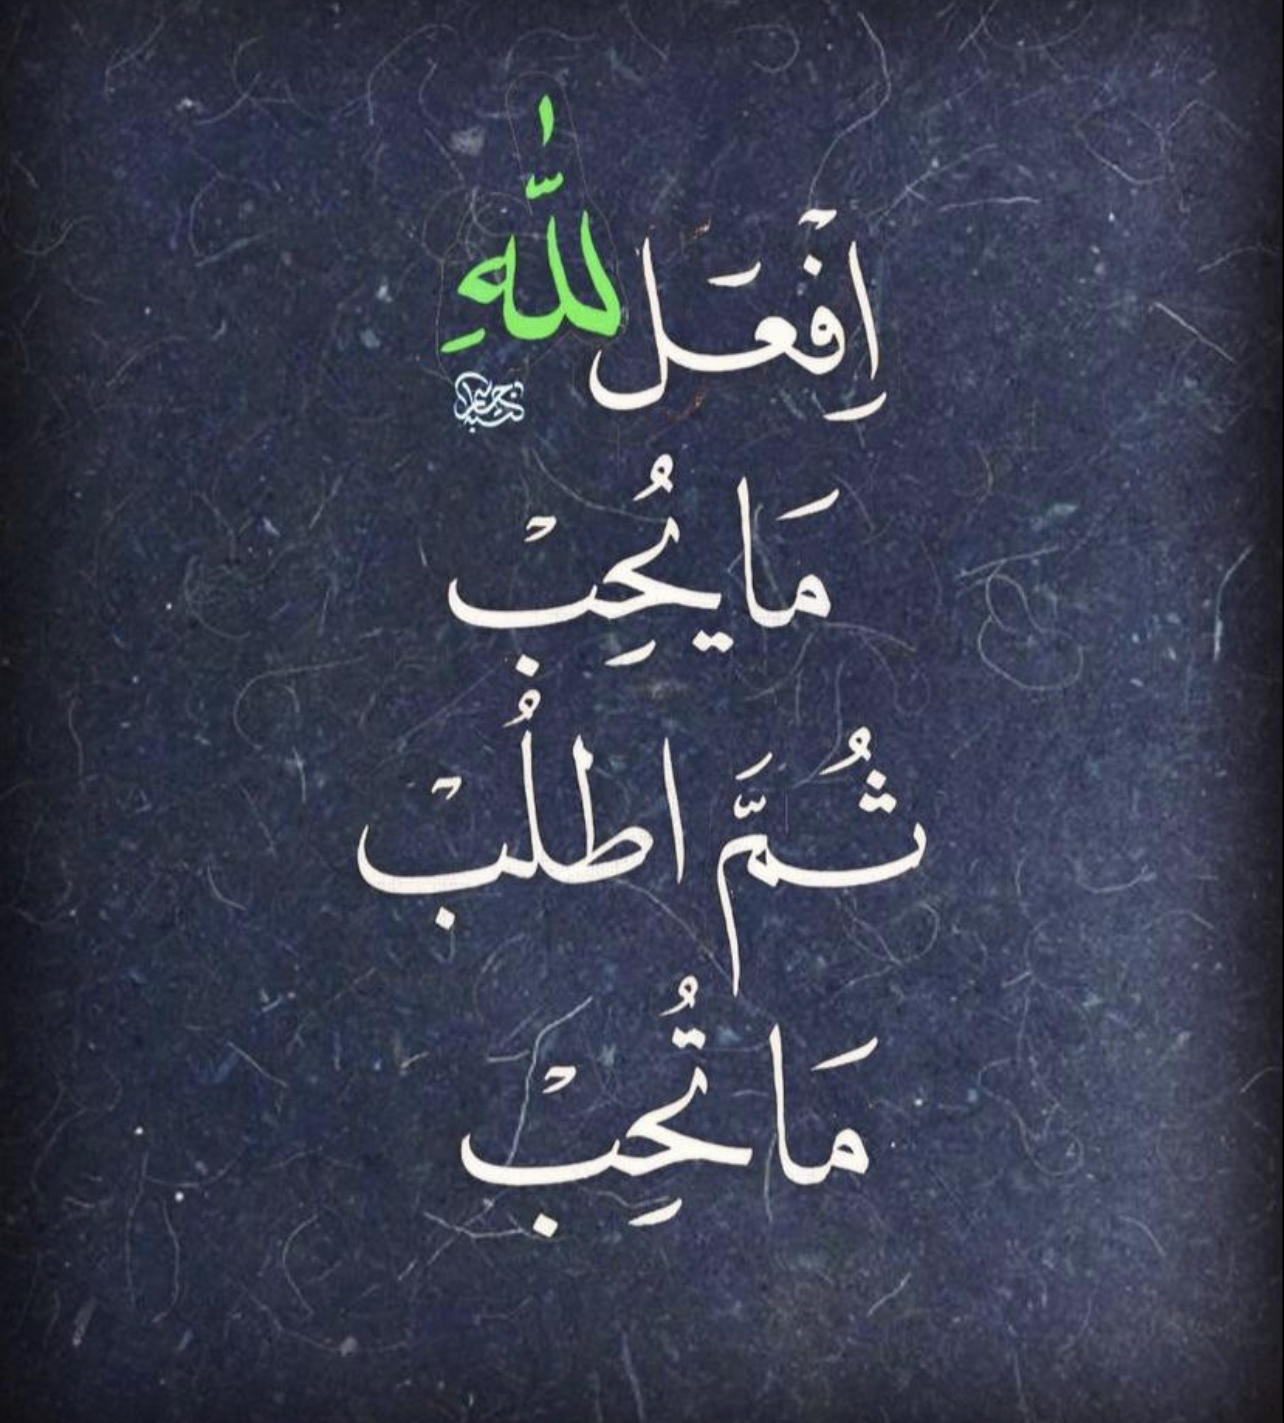 اِفْعَل لِلّٰهِ
مَا يُحِبْ
ثُمَّ اطلُبْ
مَا تُحِبْ